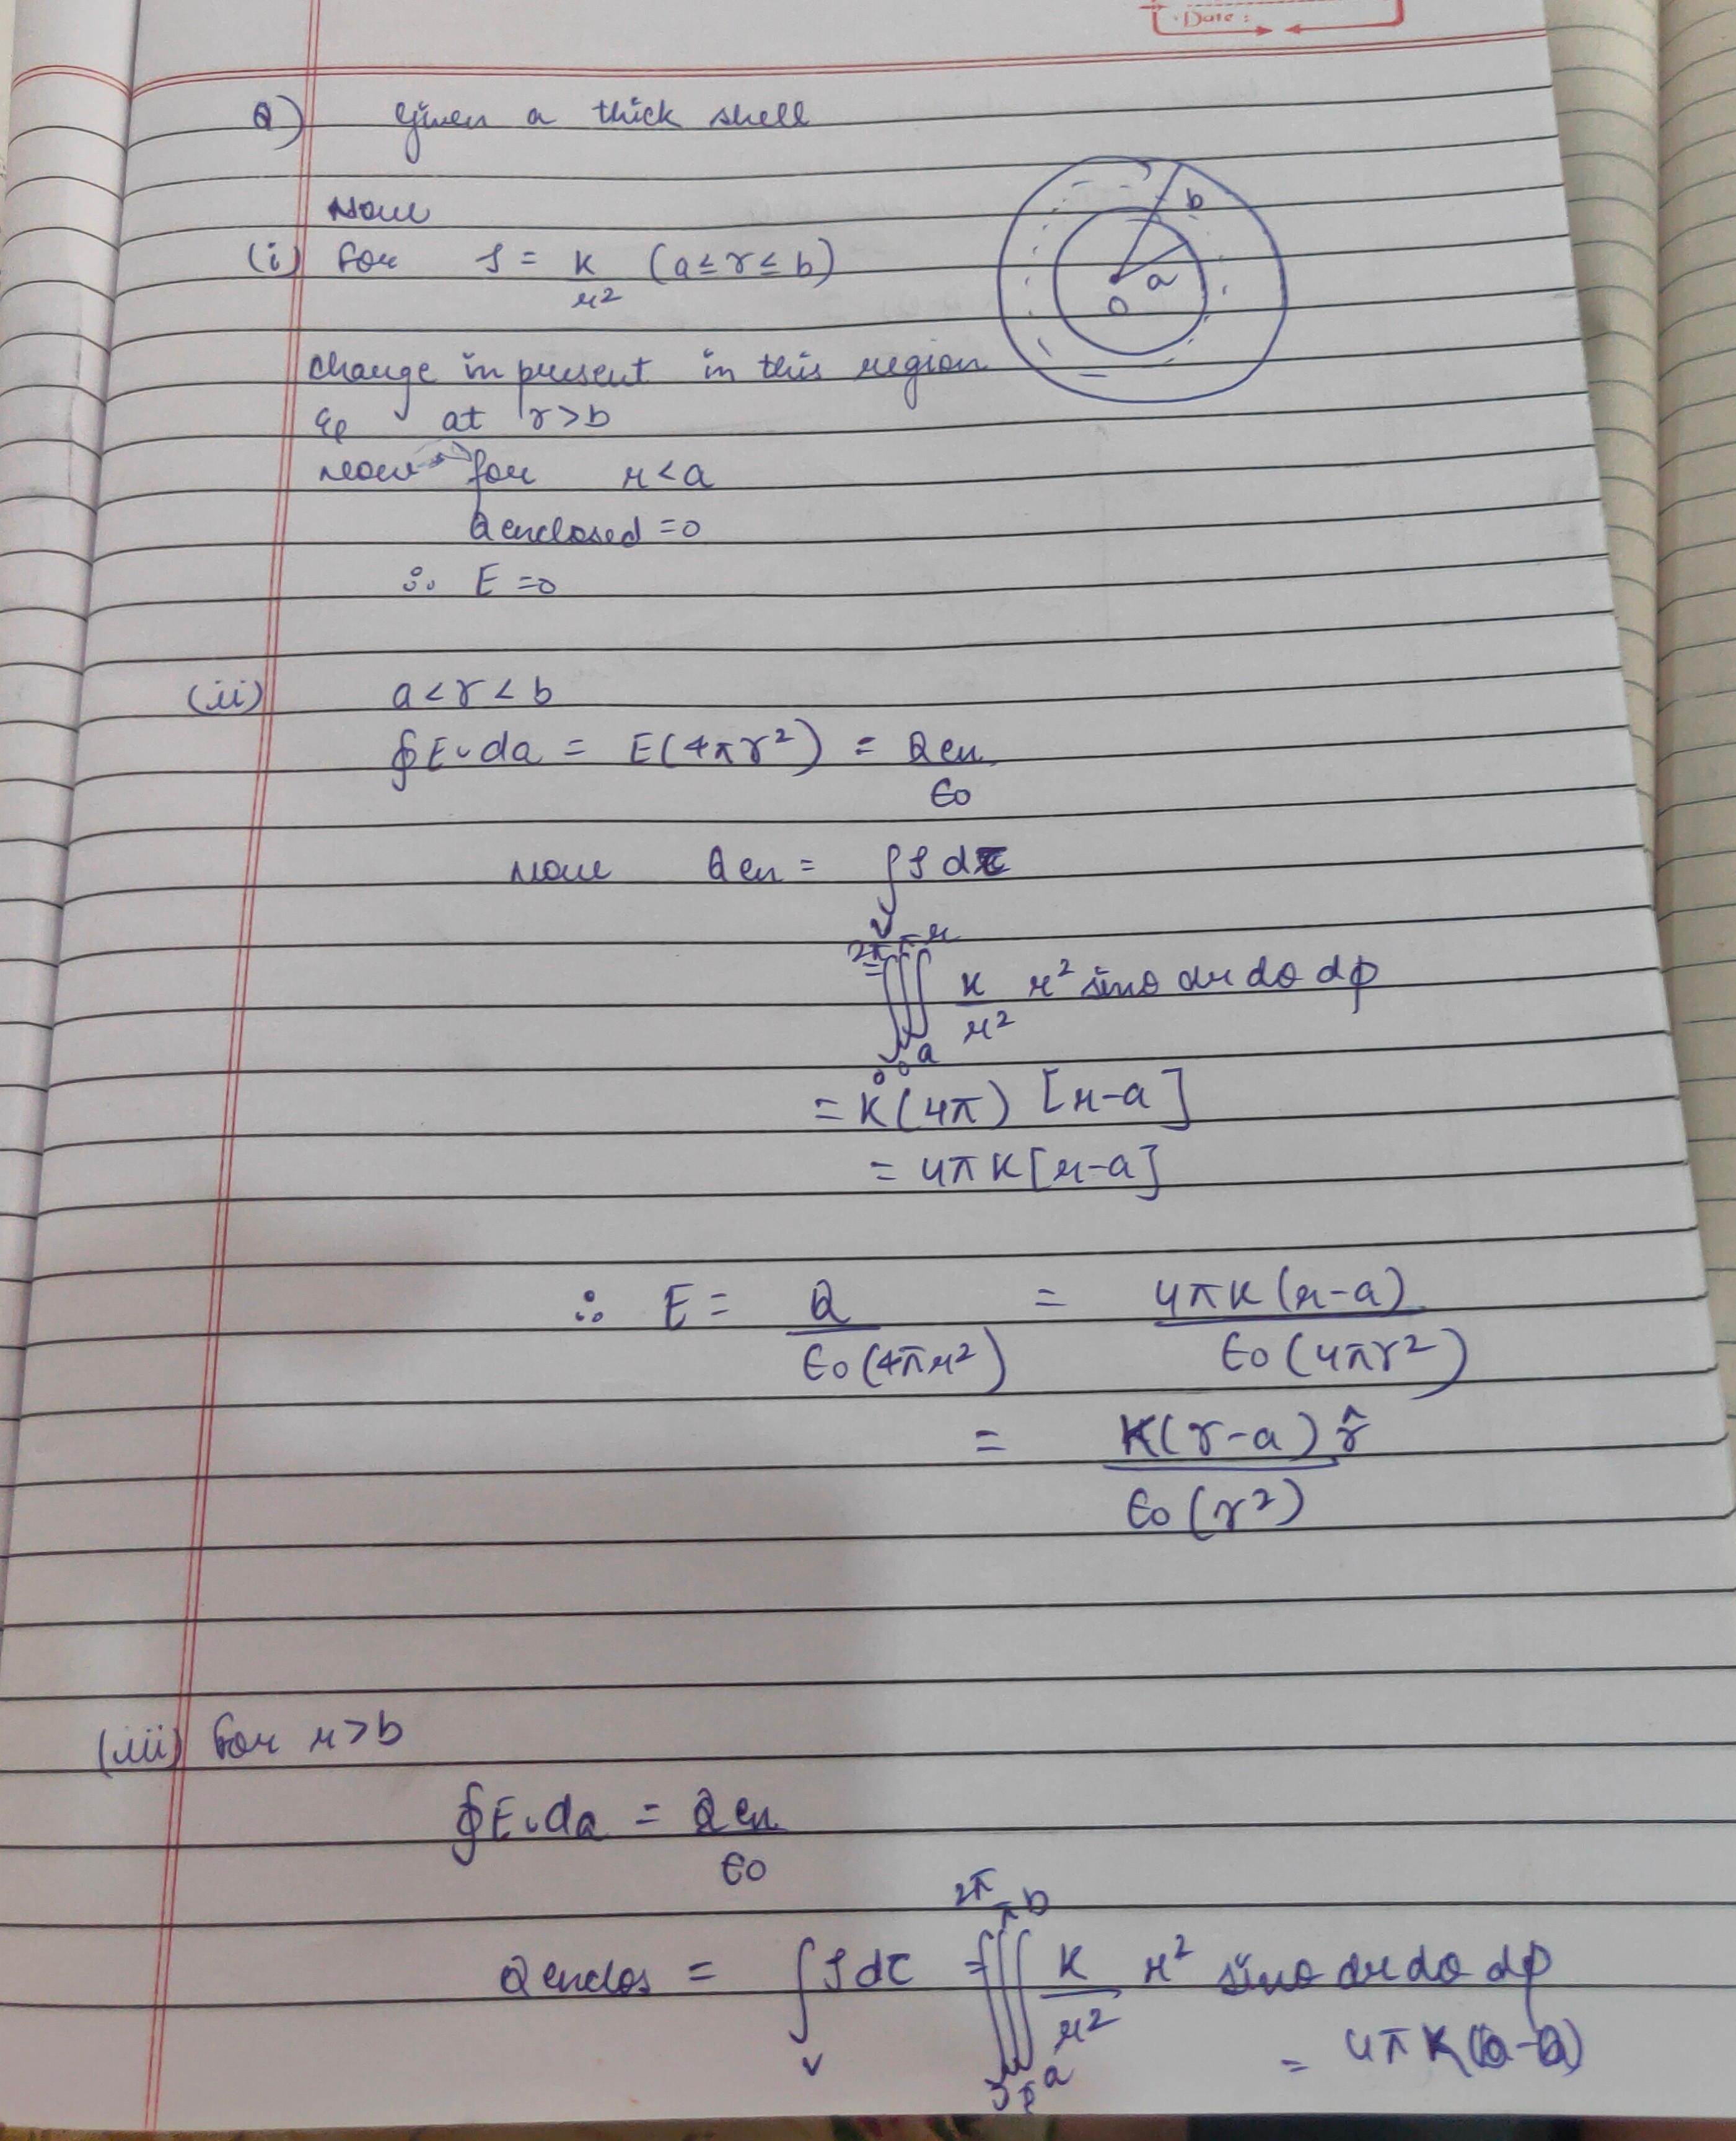 Date :
Q) Given a thick shell
Now
(i) for ρ = k/r² (a≤r≤b)
b
a
O
charge in present in this region
at r>b
now for r<a
Q enclosed =0
∴ E =0
(ii) a<r<b
∮E.da = E(4πr²) = Qen/ϵo
now Qen = ∫ρ dτ
v
= ∫₀^2π ∫₀^π ∫ₐ^r k/r² r² sinθ dr dθ dφ
= K(4π) [r-a]
= 4πK[r-a]
∴ E = Q/ϵo(4πr²) = 4πK(r-a)/ϵo(4πr²)
= K(r-a) r̂/ϵo(r²)
(iii) for r>b
∮E.da = Qen/ϵo
Qenclos = ∫ρdτ = ∫∫∫ k/r² r² sinθ dr dθ dφ
v
2π π b
a
= 4πK